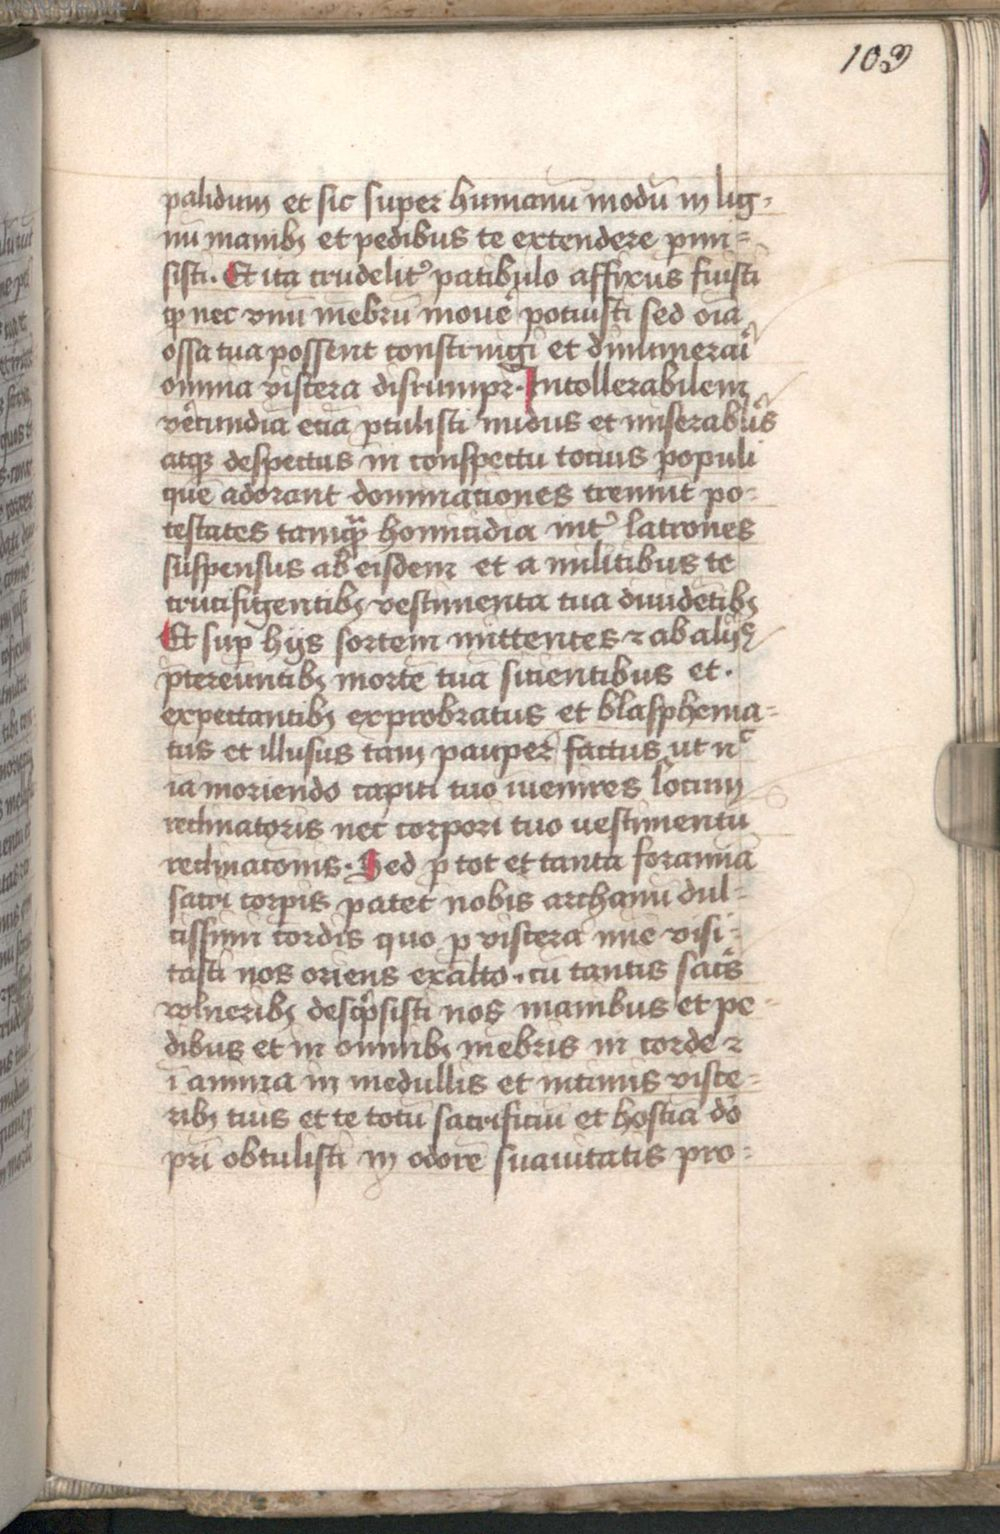 109
palidum et sic super humanū modū in lig-
nū manibꝫ et pedibus te extendere pmi-
sisti. Et ita crudelit᷑ patibulo affixus fuisti
ꝙ nec vnū mēbrū mouē potuisti sed oīa
ossa tua possent constringi et dinumerari
omnia viscera disrumpi. Intollerabilem
vēcundiā eciā ꝑtulisti nudus et miserabilis
atqꝫ despectus in conspectu tocius populi
quē adorant dominaciones tremūt po-
testates tamqᷓ homicidia int᷑ latrones
suspensus ab eisdem et a militibus te
crucifigentibꝫ vestimenta tua diuidētibꝫ
Et suꝑ hijs sortem mittentes ⁊ ab alijs
ptereuntibꝫ mortē tuā sicientibus et.
expectantibꝫ exprobratus et blasphema-
tus et illusus tam pauper factus ut nᶜ
ia moriendo capiti tuo īuenires locum
reclinatoris nec corpori tuo uestimentū
reclinaconis. Sed ꝑ tot et tanta foramīa
sacri corpis patet nobis archanū dul-
cissimi cordis quo ꝑ viscera mīe visi-
tasti nos oriens exalto. cū tantis sacis
volneribꝫ descpsisti nos manibus et pe-
dibus et in omnibꝫ mēbris in corde ⁊
ī anima in medullis et intimis visce-
ribꝫ tuis et te totū sacrificiū et hostiā dō
prī obtulisti in odorē suauitatis pro-